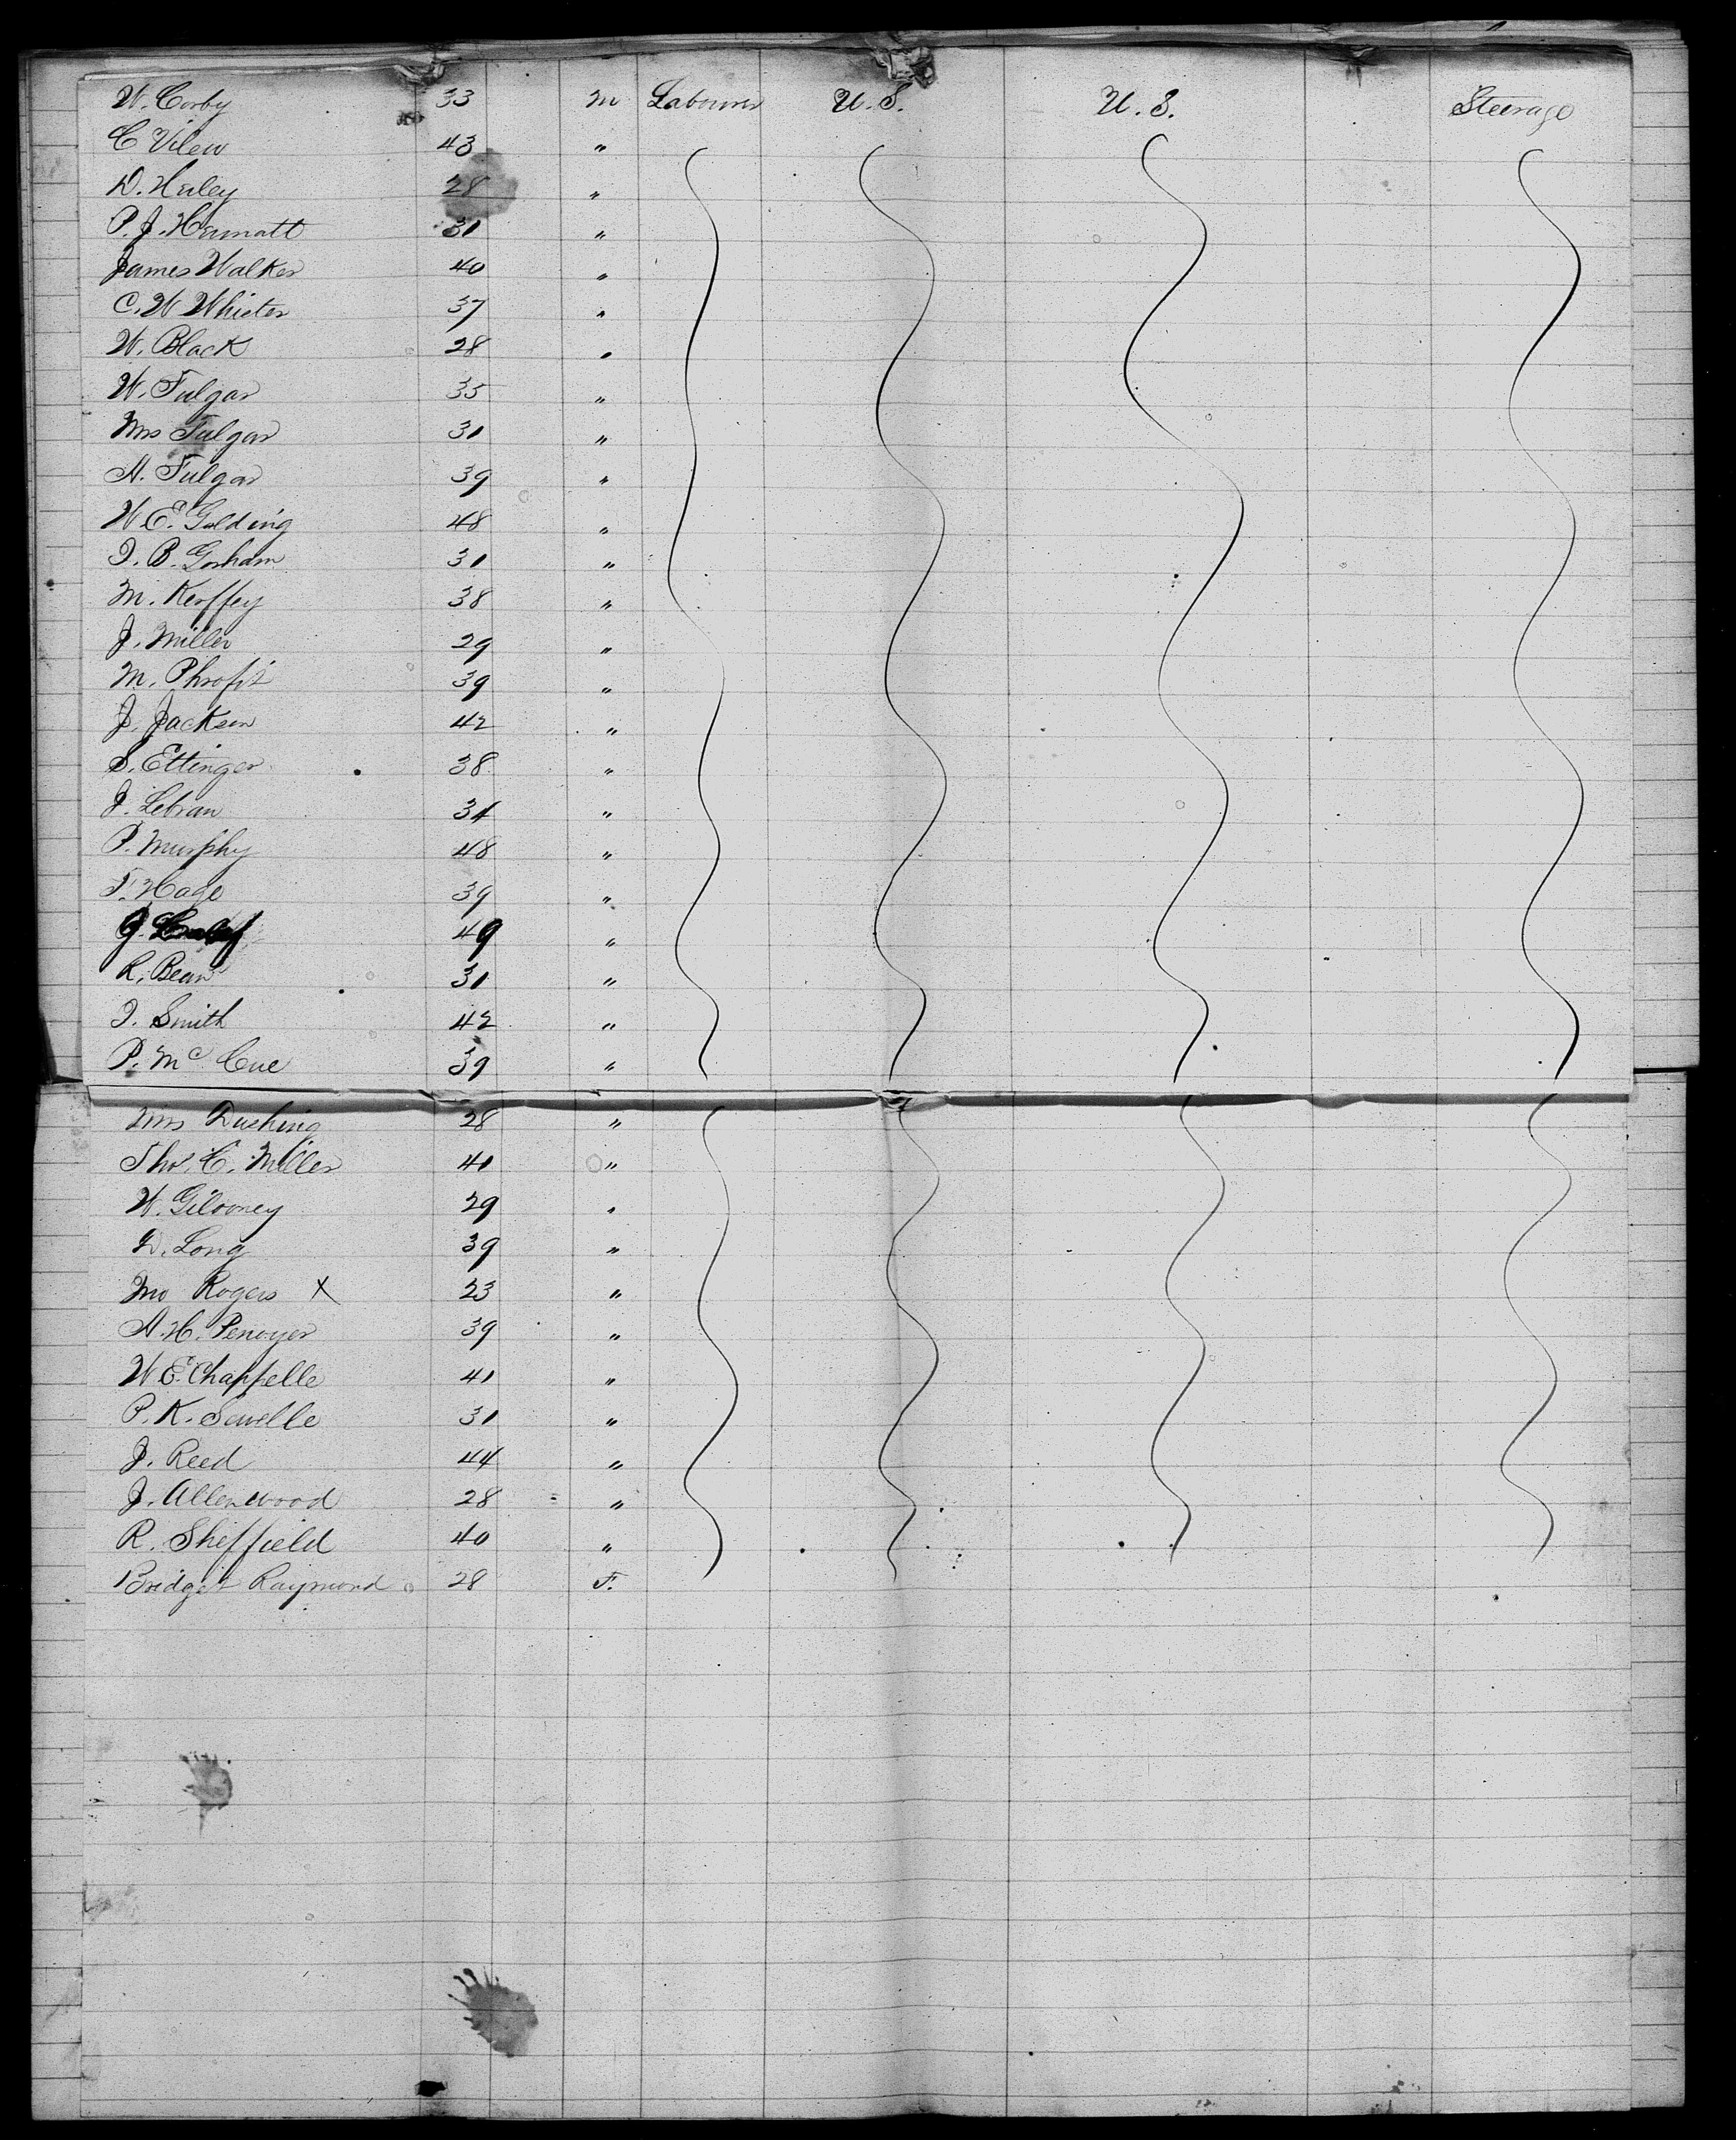 W. Corby 33 M Labourer U.S. U.S. Steerage
C Vilew 43 "
D. Hurley 28 "
P. J. Hermatt 31 "
James Walker 40 "
C. W Whister 37 "
W. Black 28 "
W. Fulgar 35 "
Mrs Fulgar 31 "
A. Fulgar 39 "
W E. Golding 48 "
I. B. Gorham 31 "
M. Kerffey 38 "
J. Miller 29 "
M. Phrofit 39 "
J. Jackson 42 "
S. Ettinger 38 "
J. Lebran 34 "
P. Murphy 48 "
F. Hage 39 "
J. 49 "
R. Bean 31 "
I. Smith 42 "
P. Mc Cue 39 "
Dushing 28 "
Thos. C. Miller 41 "
W. Gilooney 29 "
D. Long 39 "
Rogers X 23 "
A. H. Penoyer 39 "
W E. Chappelle 41 "
P. K. Sewelle 31 "
J. Reed 44 "
J. Allenwood 28 "
R. Sheffield 40 "
Bridget Raymond 28 F.